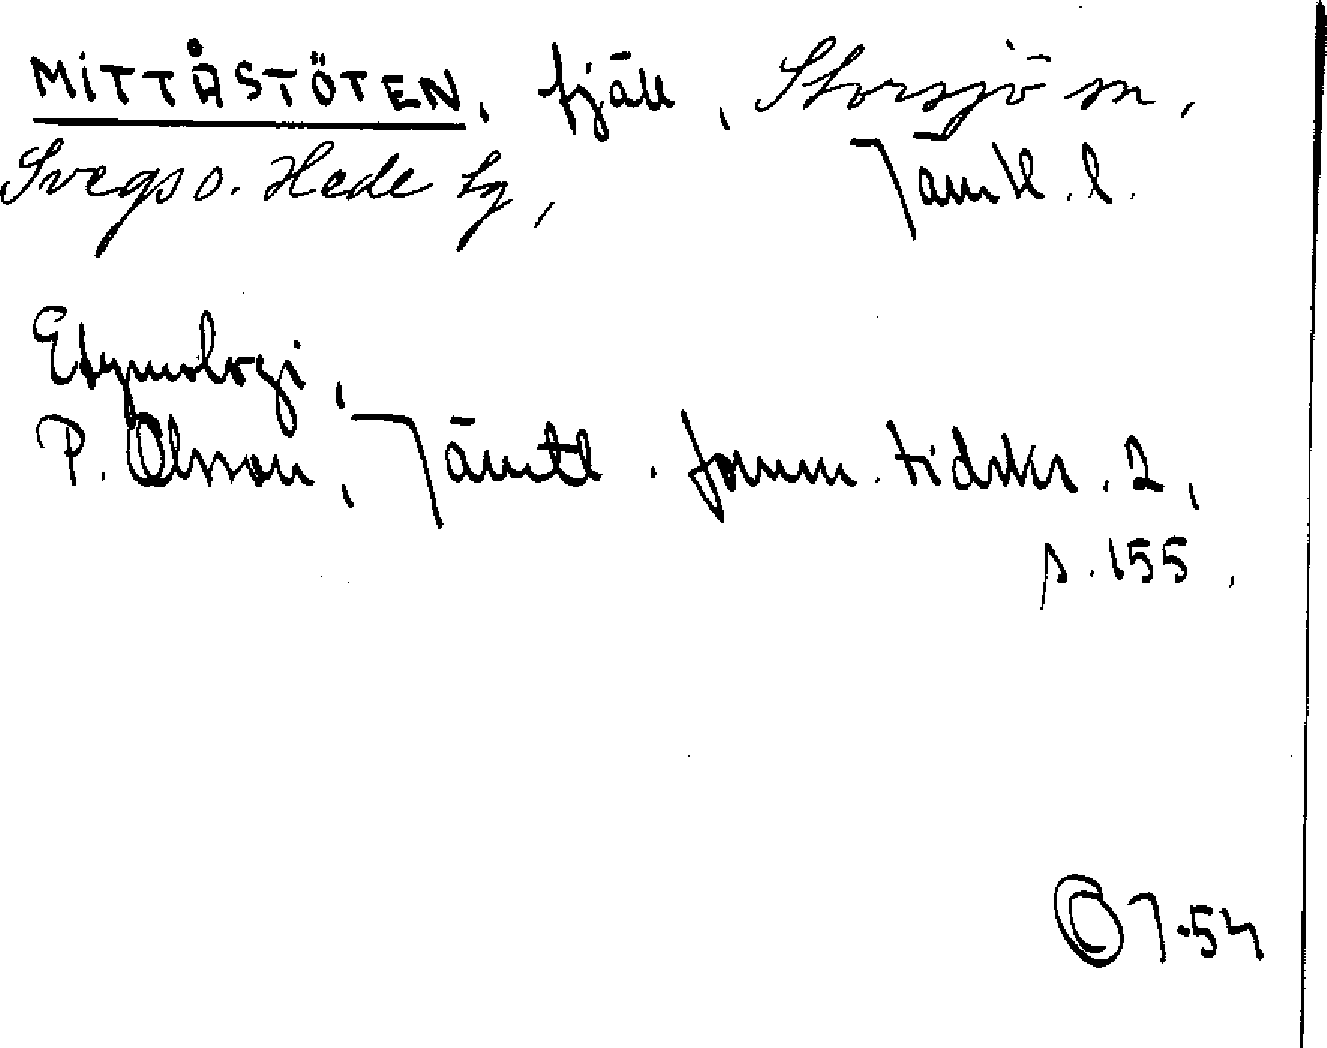 MITTÅSTÖTEN, fjäll, Storsjö sn,
Svegs o. Hede tg, Jämtl. l.
Etymologi,
P. Olsson, Jämtl. fornm. tidskr. 2,
s. 155.
7.54